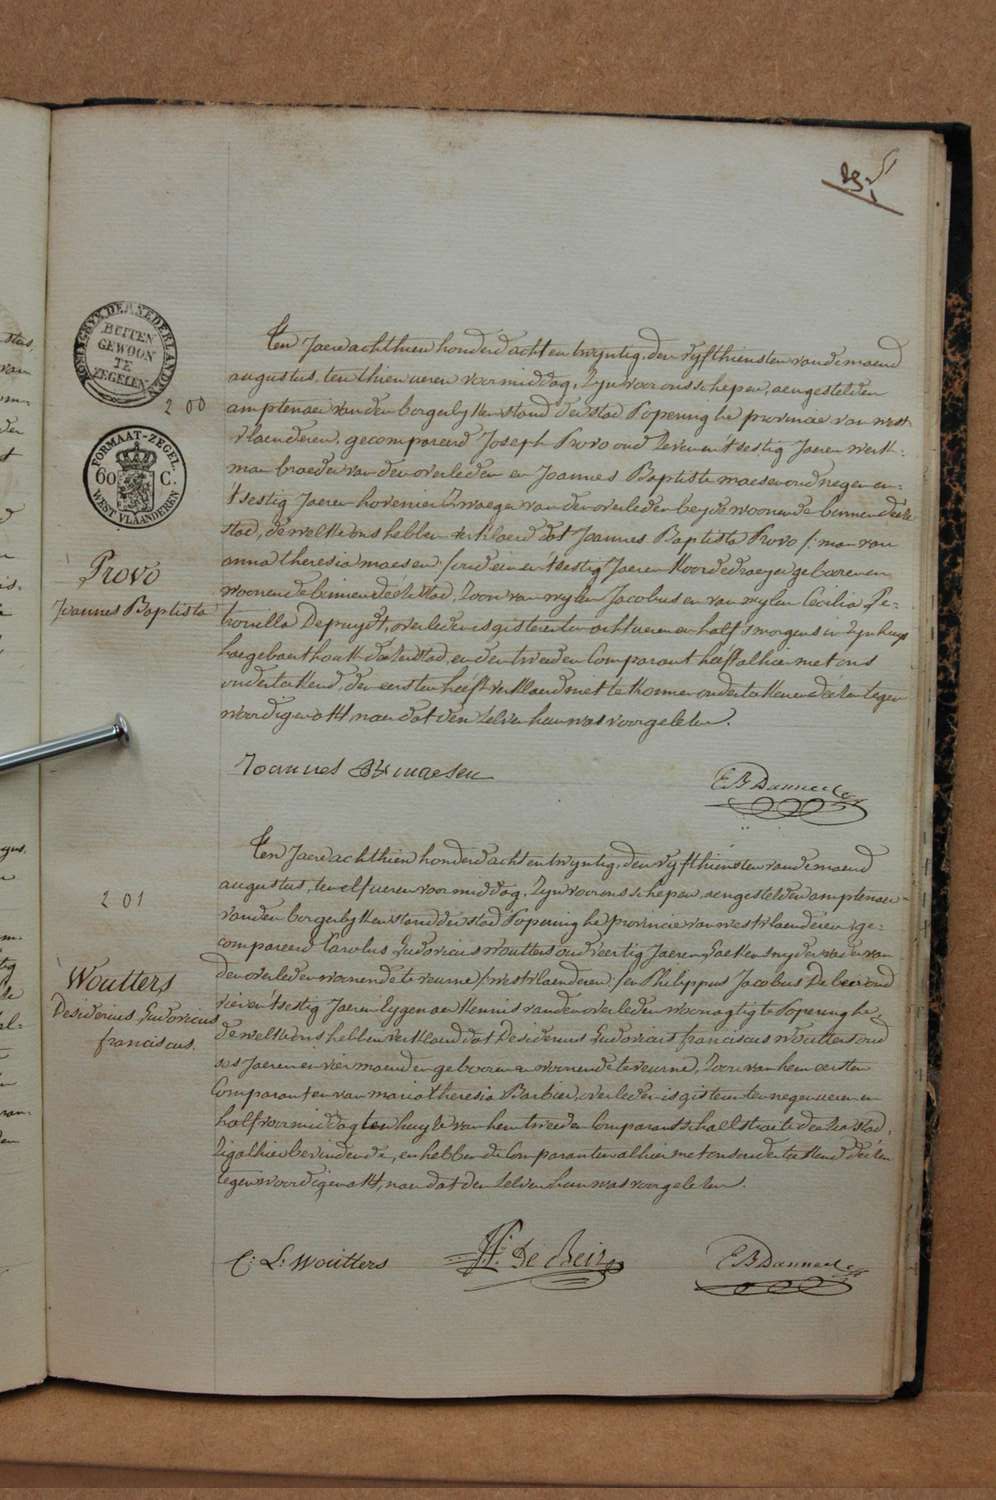 KONINGRYK DER NEDERLANDEN
BUITEN
GEWOON
TE
ZEGELEN
FORMAAT-ZEGEL.
60 C.
WEST VLAANDEREN
200
Provo
Joannes Baptista
Ten Jaere achthien honderd acht en twyntig, den vyfthiensten van de maend
augustus, ten thien ueren voormiddag, Zyn voor ons schepen, aengestelden
amptenaer van den borgerlyken stand der stad Poperinghe provincie van west
vlaenderen, gecompareerd Joseph Provo oud Zeven en t'sestig Jaeren werk-
man broeder van den overleden en Joannes Baptiste maesen oud negen en
t'sestig Jaeren hovenier Zwaeger van den overleden beyde woonende binnen dése
stad, de welke ons hebben verklaerd dat Joannes Baptista Provo /: man van
anna theresia maesen :/ oud een en t'sestig Jaeren koordedraeger gebooren en
woonende binnen dése stad, Zoon van wylen Jacobus en van wylen Cecilia Pe-
tronilla Depruydt, overleden is gisteren ten acht ueren en half s'morgens in Zyn huys
haegebaerthoek dezer stad, en den tweeden Comparant heeft alhier met ons
onderteekend, den eersten heeft verklaerd niet te konnen onderteekenen dézen tegen
woordigen akt, naer dat den Zelven hun was voorgelezen.
Joannes Bt maesen
E B Dannee
201
Woutters
Desiderius Ludovicus
franciscus.
Ten Jaere achthien honderd acht en twyntig, den vyfthiensten van de maend
augustus, ten elf ueren voormiddag, Zyn voor ons schepen, aengestelden amptenaer
van den borgerlyken stand der stad Poperinghe /provincie van westvlaenderen/ ge-
compareerd Carolus Ludovicus Woutters oud veertig Jaeren, vader van
den overleden woonende te veurne /westvlaenderen/ en Philippus Jacobus De beir oud
vier en t'sestig Jaeren eygenaer kennis van den overleden woonagtig te Poperinghe,
de welke ons hebben verklaerd dat Desiderius Ludovicus franciscus Woutters oud
ses Jaeren en vier maenden gebooren en woonende te veurne, Zoon van hem eersten
Comparant en van maria theresia Barbier, overleden is gisteren ten negen ueren en
half voormiddag ten huyse van hem tweeden Comparant dezer stad,
Zig alhier bevindende, en hebben de Comparanten alhier met ons onderteekend dézen
tegenwoordigen akt, naer dat den Zelven hun was voorgelezen.
C. L. Woutters
De Beir
E B Dannee